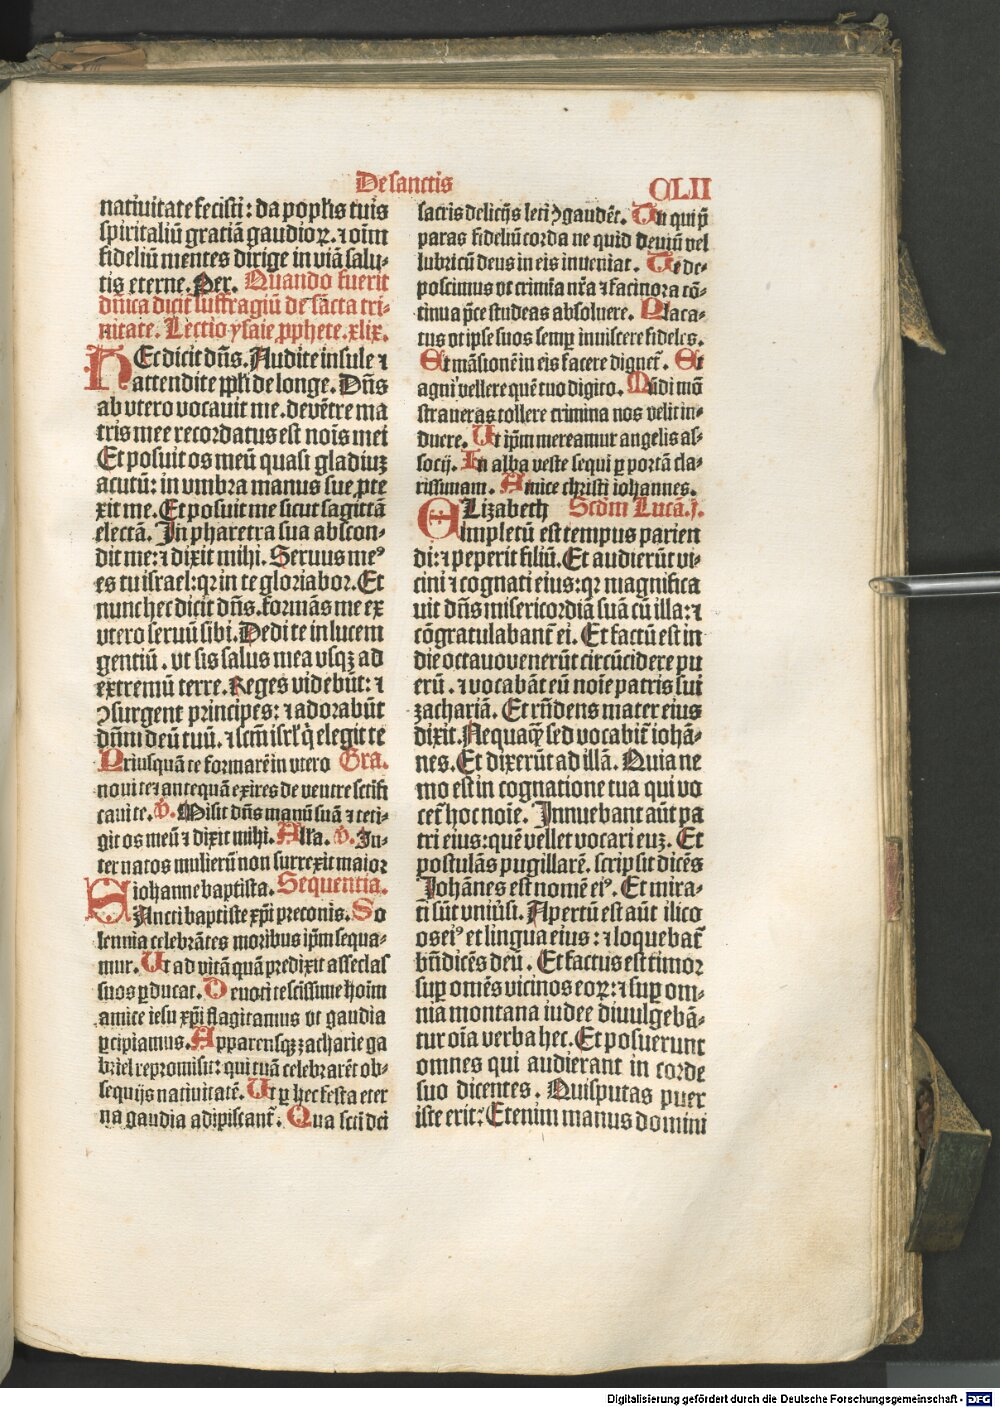 De sanctis
CLII
natiuitate fecisti: da populis tuis
spiritaliū gratiā gaudioꝝ. ⁊ oīm
fideliū mentes dirige in viā salu-
tis eterne. Per. Quando fuerit
dn̄ica dicit͛ suffragiū de sācta tri-
nitate. Lectio ysaie ꝓphete. xlix.
HEc dicit dn̄s. Audite insule ⁊
attendite ppl̓i de longe. Dn̄s
ab vtero vocauit me. de vētre ma
tris mee recordatus est nois mei
Et posuit os meū quasi gladiuꝫ
acutū: in vmbra manus sue ꝓte
xit me. Et posuit me sicut sagittā
electā. In pharetra sua abscon-
dit me: ⁊ dixit mihi. Seruus meꝰ
es tu israel: qꝛ in te gloriabor. Et
nunc hec dicit dn̄s. formās me ex
vtero seruū sibi. Dedi te in lucem
gentiū. vt sis salus mea vsqꝫ ad
extremū terre. Reges videbūt: ⁊
ꝯsurgent principes: ⁊ adorabūt
dn̄m deū tuū. ⁊ scm̄ isrl̓ q̇ elegit te
Priusquā te formarē in vtero Gra.
noui te ⁊ antequā exires de ventre sctifi
caui te. ℣. Misit dn̄s manū suā ⁊ teti-
git os meū ⁊ dixit mihi. Alla. ℣. In-
ter natos mulierū non surrexit maior
iohanne baptista. Sequentia.
SAncti baptiste xp̄i preconis. So
lennia celebrātes moribus ip̄m sequa-
mur. Ut ad vitā quā predixit asseclas
suos ꝑducat. Deuoti te scissime hoīm
amice iesu xp̄i flagitamus vt gaudia
ꝑcipiamus. Apparensqꝫ zacharie ga
briel repromisit: qui tuā celebrarēt ob-
sequijs natiuitatē. Ut ꝑ hec festa eter
na gaudia adipiscant͛. Qua scti dei
sacris delicijs leti ꝯgaudēt. Tu qui p̄
paras fideliū corda ne quid deuiū vel
lubricū deus in eis inueniat. Te de-
poscimus vt crimīa nr̄a ⁊ facinora cō-
tinua p̄ce studeas absoluere. Placa-
tus vt ipse suos semꝑ inuisere fideles.
Et māsionē in eis facere dignet͛. Et
agniꝰ vellere quē tuo digito. Mūdi mō
straueras tollere crimina nos velit in-
duere. Ut ip̄m mereamur angelis as-
socij. In alba veste sequi ꝑ portā cla-
rissimam. Amice christi iohannes.
ELizabeth Scdm Lucā. j.
impletū est tempus parien
di: ⁊ peperit filiū. Et audierūt vi-
cini ⁊ cognati eius: qꝛ magnifica
uit dn̄s misericordiā suā cū illa: ⁊
cōgratulabant͛ ei. Et factū est in
die octauo venerūt circūcidere pu
erū. ⁊ vocabāt eū noīe patris sui
zachariā. Et rn̄dens mater eius
dixit. Nequaq̄ꝫ sed vocabit͛ iohā-
nes. Et dixerūt ad illā. Quia ne
mo est in cognatione tua qui vo
cet͛ hoc noīe. Innuebant aūt pa
tri eius: quē vellet vocari euꝫ. Et
postulās pugillarē. scripsit dicēs
Johānes est nomē eiꝰ. Et mira-
ti sūt vniūsi. Apertū est aūt ilico
os eiꝰ et lingua eius: ⁊ loquebat͛
bn̄dicēs deū. Et factus est timor
suꝑ omēs vicinos eoꝝ: ⁊ suꝑ om-
nia montana iudee diuulgebā-
tur oīa verba hec. Et posuerunt
omnes qui audierant in corde
suo dicentes. Quis putas puer
iste erit: Etenim manus domini
Digitalisierung gefördert durch die Deutsche Forschungsgemeinschaft - DFG